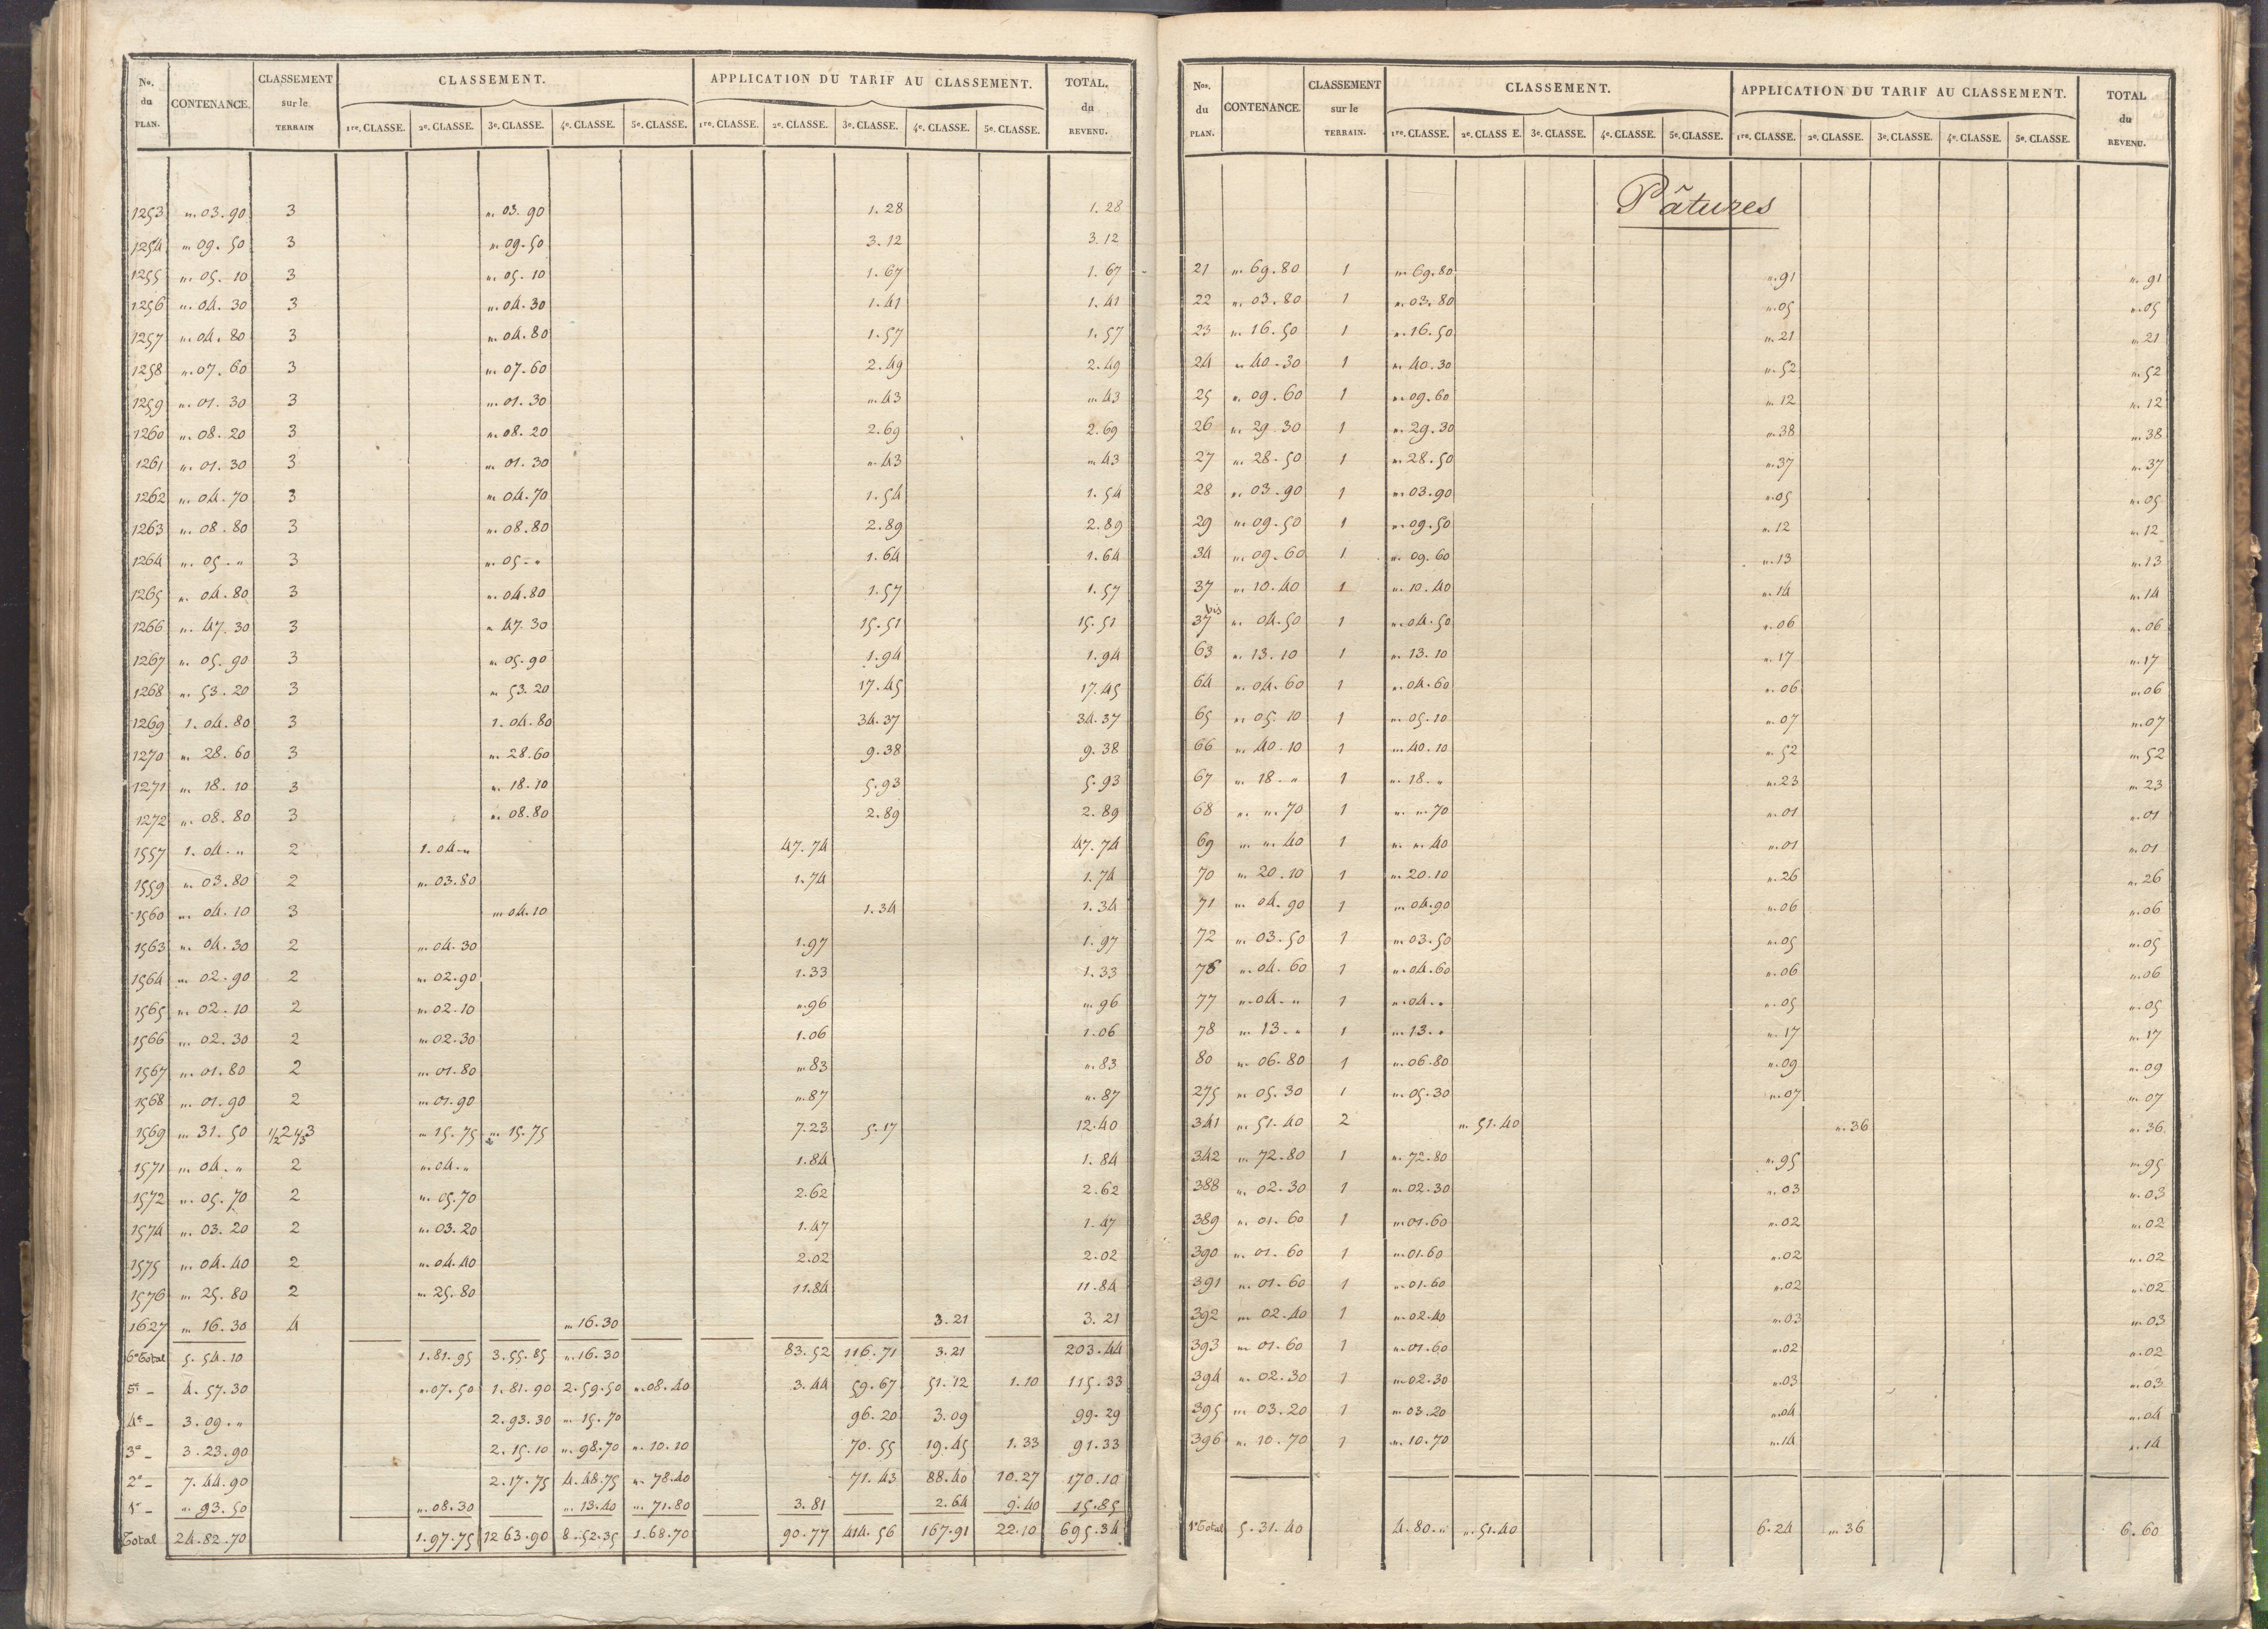 No. du PLAN. CONTENANCE. CLASSEMENT sur le TERRAIN CLASSEMENT. APPLICATION DU TARIF AU CLASSEMENT. TOTAL. du REVENU.
1re. CLASSE. 2e. CLASSE. 3e. CLASSE. 4e. CLASSE. 5e. CLASSE. 1re. CLASSE. 2e. CLASSE. 3e. CLASSE. 4e. CLASSE. 5e. CLASSE.
1253 „. 03. 90 3 „. 03. 90 1. 28 1. 28
1254 „. 09. 50 3 „. 09. 50 3. 12 3. 12
1255 „. 05. 10 3 „. 05. 10 1. 67 1. 67
1256 „. 04. 30 3 „. 04. 30 1. 41 1. 41
1257 „. 04. 80 3 „. 04. 80 1. 57 1. 57
1258 „. 07. 60 3 „. 07. 60 2. 49 2. 49
1259 „. 01. 30 3 „. 01. 30 „. 43 „. 43
1260 „. 08. 20 3 „. 08. 20 2. 69 2. 69
1261 „. 01. 30 3 „. 01. 30 „. 43 „. 43
1262 „. 04. 70 3 „. 04. 70 1. 54 1. 54
1263 „. 08. 80 3 „. 08. 80 2. 89 2. 89
1264 „. 05. „ 3 „. 05. „ 1. 64 1. 64
1265 „. 04. 80 3 „. 04. 80 1. 57 1. 57
1266 „. 47. 30 3 „. 47. 30 15. 51 15. 51
1267 „. 05. 90 3 „. 05. 90 1. 94 1. 94
1268 „. 53. 20 3 „. 53. 20 17. 45 17. 45
1269 1. 04. 80 3 1. 04. 80 34. 37 34. 37
1270 „. 28. 60 3 „. 28. 60 9. 38 9. 38
1271 „. 18. 10 3 „. 18. 10 5. 93 5. 93
1272 „. 08. 80 3 „. 08. 80 2. 89 2. 89
1557 1. 04. „ 2 1. 04. „ 47. 74 47. 74
1559 „. 03. 80 2 „. 03. 80 1. 74 1. 74
1560 „. 04. 10 3 „. 04. 10 1. 34 1. 34
1563 „. 04. 30 2 „. 04. 30 1. 97 1. 97
1564 „. 02. 90 2 „. 02. 90 1. 33 1. 33
1565 „. 02. 10 2 „. 02. 10 „. 96 „. 96
1566 „. 02. 30 2 „. 02. 30 1. 06 1. 06
1567 „. 01. 80 2 „. 01. 80 „. 83 „. 83
1568 „. 01. 90 2 „. 01. 90 „. 87 „. 87
1569 „. 31. 50 1/2 2 3 „. 15. 75 „. 15. 75 7. 23 5. 17 12. 40
1571 „. 04. „ 2 „. 04. „ 1. 84 1. 84
1572 „. 05. 70 2 „. 05. 70 2. 62 2. 62
1574 „. 03. 20 2 „. 03. 20 1. 47 1. 47
1575 „. 04. 40 2 „. 04. 40 2. 02 2. 02
1576 „. 25. 80 2 „. 25. 80 11. 84 11. 84
1627 „. 16. 30 4 „. 16. 30 3. 21 3. 21
6e Total 5. 54. 10 1. 81. 95 3. 55. 85 „. 16. 30 83. 52 116. 71 3. 21 203. 44
5e _ 4. 57. 30 „. 07. 50 1. 81. 90 2. 59. 50 „. 08. 40 3. 44 59. 67 51. 12 1. 10 115. 33
4e _ 3. 09. „ 2. 93. 30 „. 15. 70 96. 20 3. 09 99. 29
3e _ 3. 23. 90 2. 15. 10 „. 98. 70 „. 10. 10 70. 55 19. 45 1. 33 91. 33
2e _ 7. 44. 90 2. 17. 75 4. 48. 75 „. 78. 40 71. 43 88. 40 10. 27 170. 10
1r _ „. 93. 50 „. 08. 30 „. 13. 40 „. 71. 80 3. 81 2. 64 9. 40 15. 85
Total 24. 82. 70 1. 97. 75 12 63. 90 8. 52. 35 1. 68. 70 90. 77 414. 56 167. 91 22. 10 695. 34
Nos. du PLAN. CONTENANCE. CLASSEMENT sur le TERRAIN. CLASSEMENT. APPLICATION DU TARIF AU CLASSEMENT. TOTAL du REVENU.
1re. CLASSE. 2e. CLASS E. 3e. CLASSE. 4e. CLASSE. 5e. CLASSE. 1re. CLASSE. 2e. CLASSE. 3e. CLASSE. 4e. CLASSE. 5e. CLASSE.
Pâtures
21 „. 69. 80 1 „. 69. 80 „. 91 „. 91
22 „. 03. 80 1 „. 03. 80 „. 05 „. 05
23 „. 16. 50 1 „. 16. 50 „. 21 „. 21
24 „. 40. 30 1 „. 40. 30 „. 52 „. 52
25 „. 09. 60 1 „. 09. 60 „. 12 „. 12
26 „. 29. 30 1 „. 29. 30 „. 38 „. 38
27 „. 28. 50 1 „. 28. 50 „. 37 „. 37
28 „. 03. 90 1 „. 03. 90 „. 05 „. 05
29 „. 09. 50 1 „. 09. 50 „. 12 „. 12
34 „. 09. 60 1 „. 09. 60 „. 13 „. 13
37 „. 10. 40 1 „. 10. 40 „. 14 „. 14
37 bis „. 04. 50 1 „. 04. 50 „. 06 „. 06
63 „. 13. 10 1 „. 13. 10 „. 17 „. 17
64 „. 04. 60 1 „. 04. 60 „. 06 „. 06
65 „. 05. 10 1 „. 05. 10 „. 07 „. 07
66 „. 40. 10 1 „. 40. 10 „. 52 „. 52
67 „. 18. „ 1 „. 18. „ „. 23 „. 23
68 „. „. 70 1 „. „. 70 „. 01 „. 01
69 „. „. 40 1 „. „. 40 „. 01 „. 01
70 „. 20. 10 1 „. 20. 10 „. 26 „. 26
71 „. 04. 90 1 „. 04. 90 „. 06 „. 06
72 „. 03. 50 1 „. 03. 50 „. 05 „. 05
„. 04. 60 1 „. 04. 60 „. 06 „. 06
77 „. 04. „ 1 „. 04. „ „. 05 „. 05
78 „. 13. „ 1 „. 13. „ „. 17 „. 17
80 „. 06. 80 1 „. 06. 80 „. 09 „. 09
275 „. 05. 30 1 „. 05. 30 „. 07 „. 07
341 „. 51. 40 2 „. 51. 40 „. 36 „. 36
342 „. 72. 80 1 „. 72. 80 „. 95 „. 95
388 „. 02. 30 1 „. 02. 30 „. 03 „. 03
389 „. 01. 60 1 „. 01. 60 „. 02 „. 02
390 „. 01. 60 1 „. 01. 60 „. 02 „. 02
391 „. 01. 60 1 „. 01. 60 „. 02 „. 02
392 „. 02. 40 1 „. 02. 40 „. 03 „. 03
393 „. 01. 60 1 „. 01. 60 „. 02 „. 02
394 „. 02. 30 1 „. 02. 30 „. 03 „. 03
395 „. 03. 20 1 „. 03. 20 „. 04 „. 04
396 „. 10. 70 1 „. 10. 70 „. 14 „. 14
1r Total 5. 31. 40 4. 80. „ „. 51. 40 6. 24 „. 36 6. 60